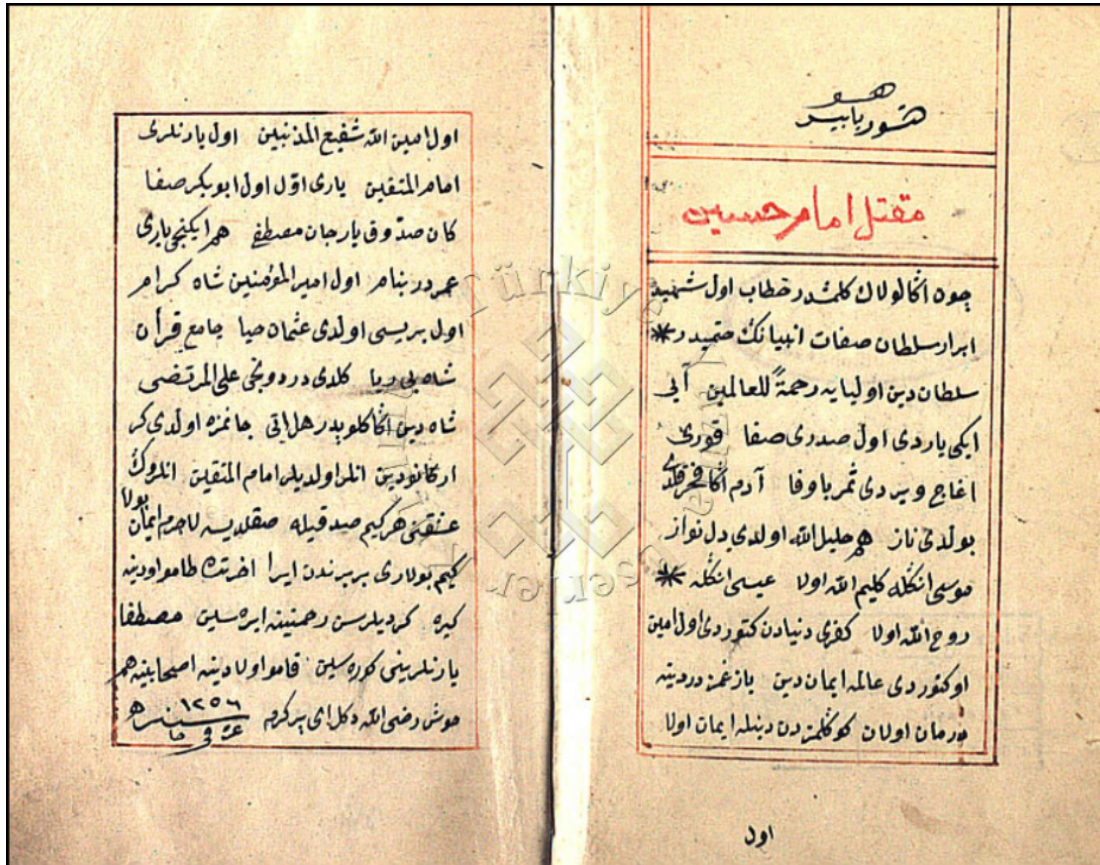 هو
مقتل امام حسين
چون اڭا لولاك كلمشدر خطاب اول شهيد
ابرار سلطان صفات انبيانڭ ختميدر *
سلطان دين اوليايه رحمةً للعالمين آني
ايكى ياردى اول صدرى صفا قورى
اغاج ويردى ثمر باوفا آدم اڭا فخر قلدى
بولدى ناز هم خليل الله اولدى دل نواز
موسى انڭله كليم الله اولا عيسى انڭله *
روح الله اولا كفرى دنيادن كتوردى اول امين
او كتوردى عالمه ايمان دين يازغمز دردينه
درمان اولان كوڭلمزدن دينله ايمان اولا
اول
اول امين الله شفيع المذنبين اول يارنلرى
امام المتقين يارى اوّل اول ابو بكر صفا
كان صدّوق يار جان مصطفى هم ايكنجى يارى
عمردر بنام اول امير المؤمنين شاه كرام
اول بريسى اولدى عثمان حيا جامع قرآن
شاه بى ريا كلدى دردونجى على المرتضى
شاه دين اڭا كلوبدر هل اتى جانمزه اولدى كر
اركانودين انلر اولديلر امام المتقين انلروڭ
عشقنى هر كيم صدقيله صقلديسه لاجرم ايمان بولا
كيم بولارى بربرندن ايرا اخرتده طامو اودينه
كيره كر ديلرسن رحمتينه ايره سين مصطفا
يارنلرينى كوره سين قامو اولادينه اصحابينه هم
خوش رضى الله دكل اى پر كرم
١٢٥٦
Türkiye
Yazma
Eserler